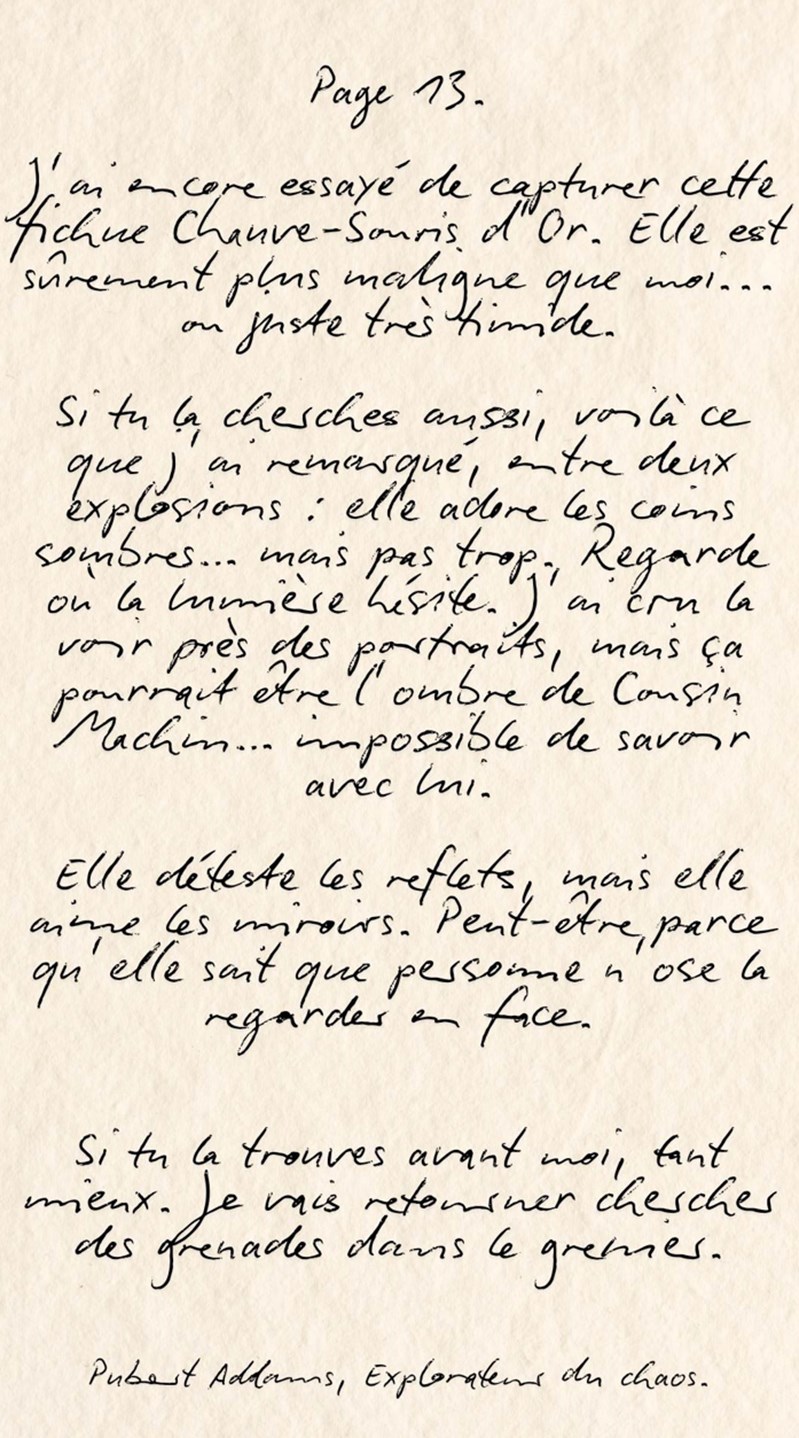 Page 13.
J'ai encore essayé de capturer cette
fichue Chauve-Souris d'Or. Elle est
sûrement plus maligne que moi...
ou juste très timide.
Si tu la cherches aussi, voilà ce
que j'ai remarqué, entre deux
explosions : elle adore les coins
sombres... mais pas trop. Regarde
où la lumière hésite. J'ai cru la
voir près des portraits, mais ça
pourrait être l'ombre de Cousin
Machin... impossible de savoir
avec lui.
Elle déteste les reflets, mais elle
aime les miroirs. Peut-être parce
qu'elle sait que personne n'ose la
regarder en face.
Si tu la trouves avant moi, tant
mieux. Je vais retourner chercher
des grenades dans le grenier.
Pubert Addams, Explorateur du chaos.